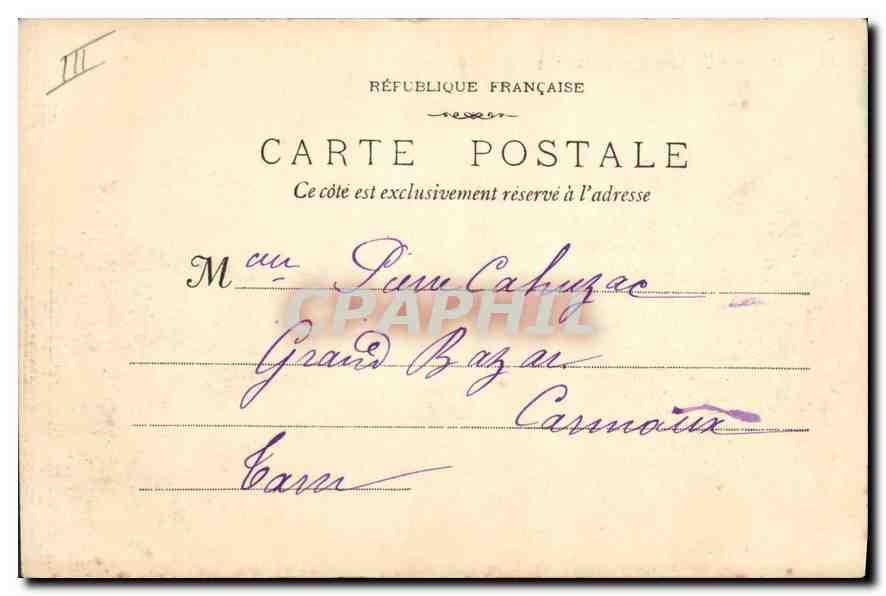 III
RÉPUBLIQUE FRANÇAISE
CARTE POSTALE
Ce côté est exclusivement réservé à l'adresse
M Pierre Cahuzac
CPAPHIL
Grand Bazar
Carmaux
Tarn